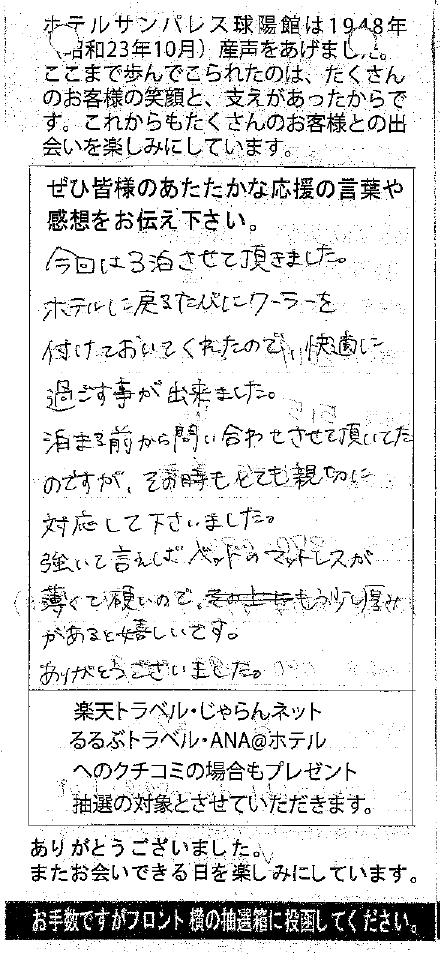 ホテルサンパレス球陽館は1948年
（昭和23年10月）産声をあげました。
ここまで歩んでこられたのは、たくさん
のお客様の笑顔と、支えがあったからで
す。これからもたくさんのお客様との出
会いを楽しみにしています。
ぜひ皆様のあたたかな応援の言葉や
感想をお伝え下さい。
今回は3泊させて頂きました。
ホテルに戻るたびにクーラーを
付けておいてくれたので、快適に
過ごす事が出来ました。
泊まる前から問い合わせさせて頂いてた
のですが、その時もとても親切に
対応して下さいました。
強いて言えばベッドのマットレスが
薄くて硬いので、もう少し厚み
があると嬉しいです。
ありがとうございました。
楽天トラベル・じゃらんネット
るるぶトラベル・ANA@ホテル
へのクチコミの場合もプレゼント
抽選の対象とさせていただきます。
ありがとうございました。
またお会いできる日を楽しみにしています。
お手数ですがフロント横の抽選箱に投函してください。